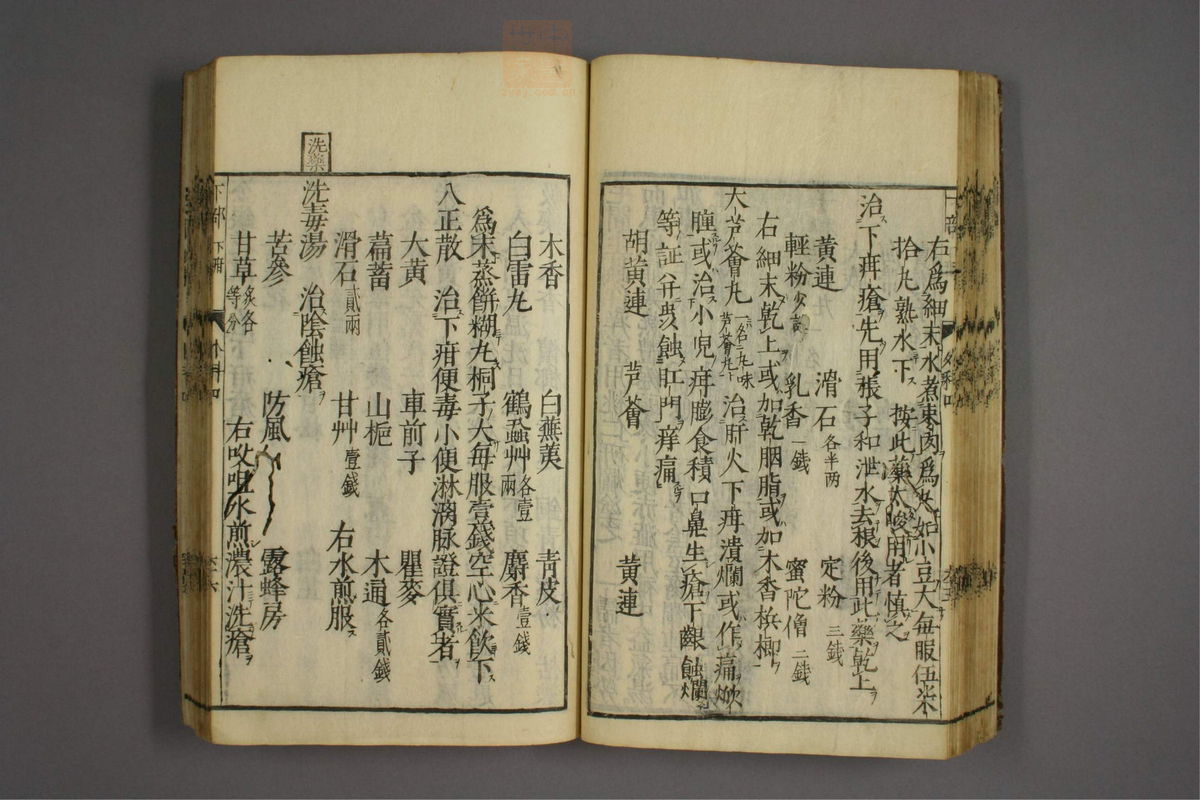 右爲細末水煮棗肉爲丸如小豆大毎服伍米
拾丸熟水下 按此藥太峻用者愼之
治下疳瘡先用張子和泄水去穢後用此藥乾上
黄連 滑石各半两 定粉三錢
輕粉少許 乳香一錢 蜜陀僧二錢
右細末乾上或加乾胭脂或加木香梹榔
大芦薈丸一名九味芦薈丸 治肝火下疳潰爛或作痛焮
腫或治小児疳膨食積口鼻生瘡下齦蝕爛
等証幷虫蝕肛門痒痛
胡黄連 芦薈 黄連
木香 白蕪荑 青皮
白雷丸 鶴蝨艸各壹两 麝香壹錢
爲末蒸餅糊丸桐子大毎服壹錢空心米飲下
八正散 治下疳便毒小便淋漓脉證俱實者
大黄 車前子 瞿麥
萹蓄 山梔 木通各貳錢
滑石貳兩 甘艸壹錢 右水煎服
洗藥
洗毒湯 治陰蝕瘡
苦參 防風 露蜂房
甘草炙各等分 右㕮咀水煎濃汁洗瘡
下部 下疳 外科四